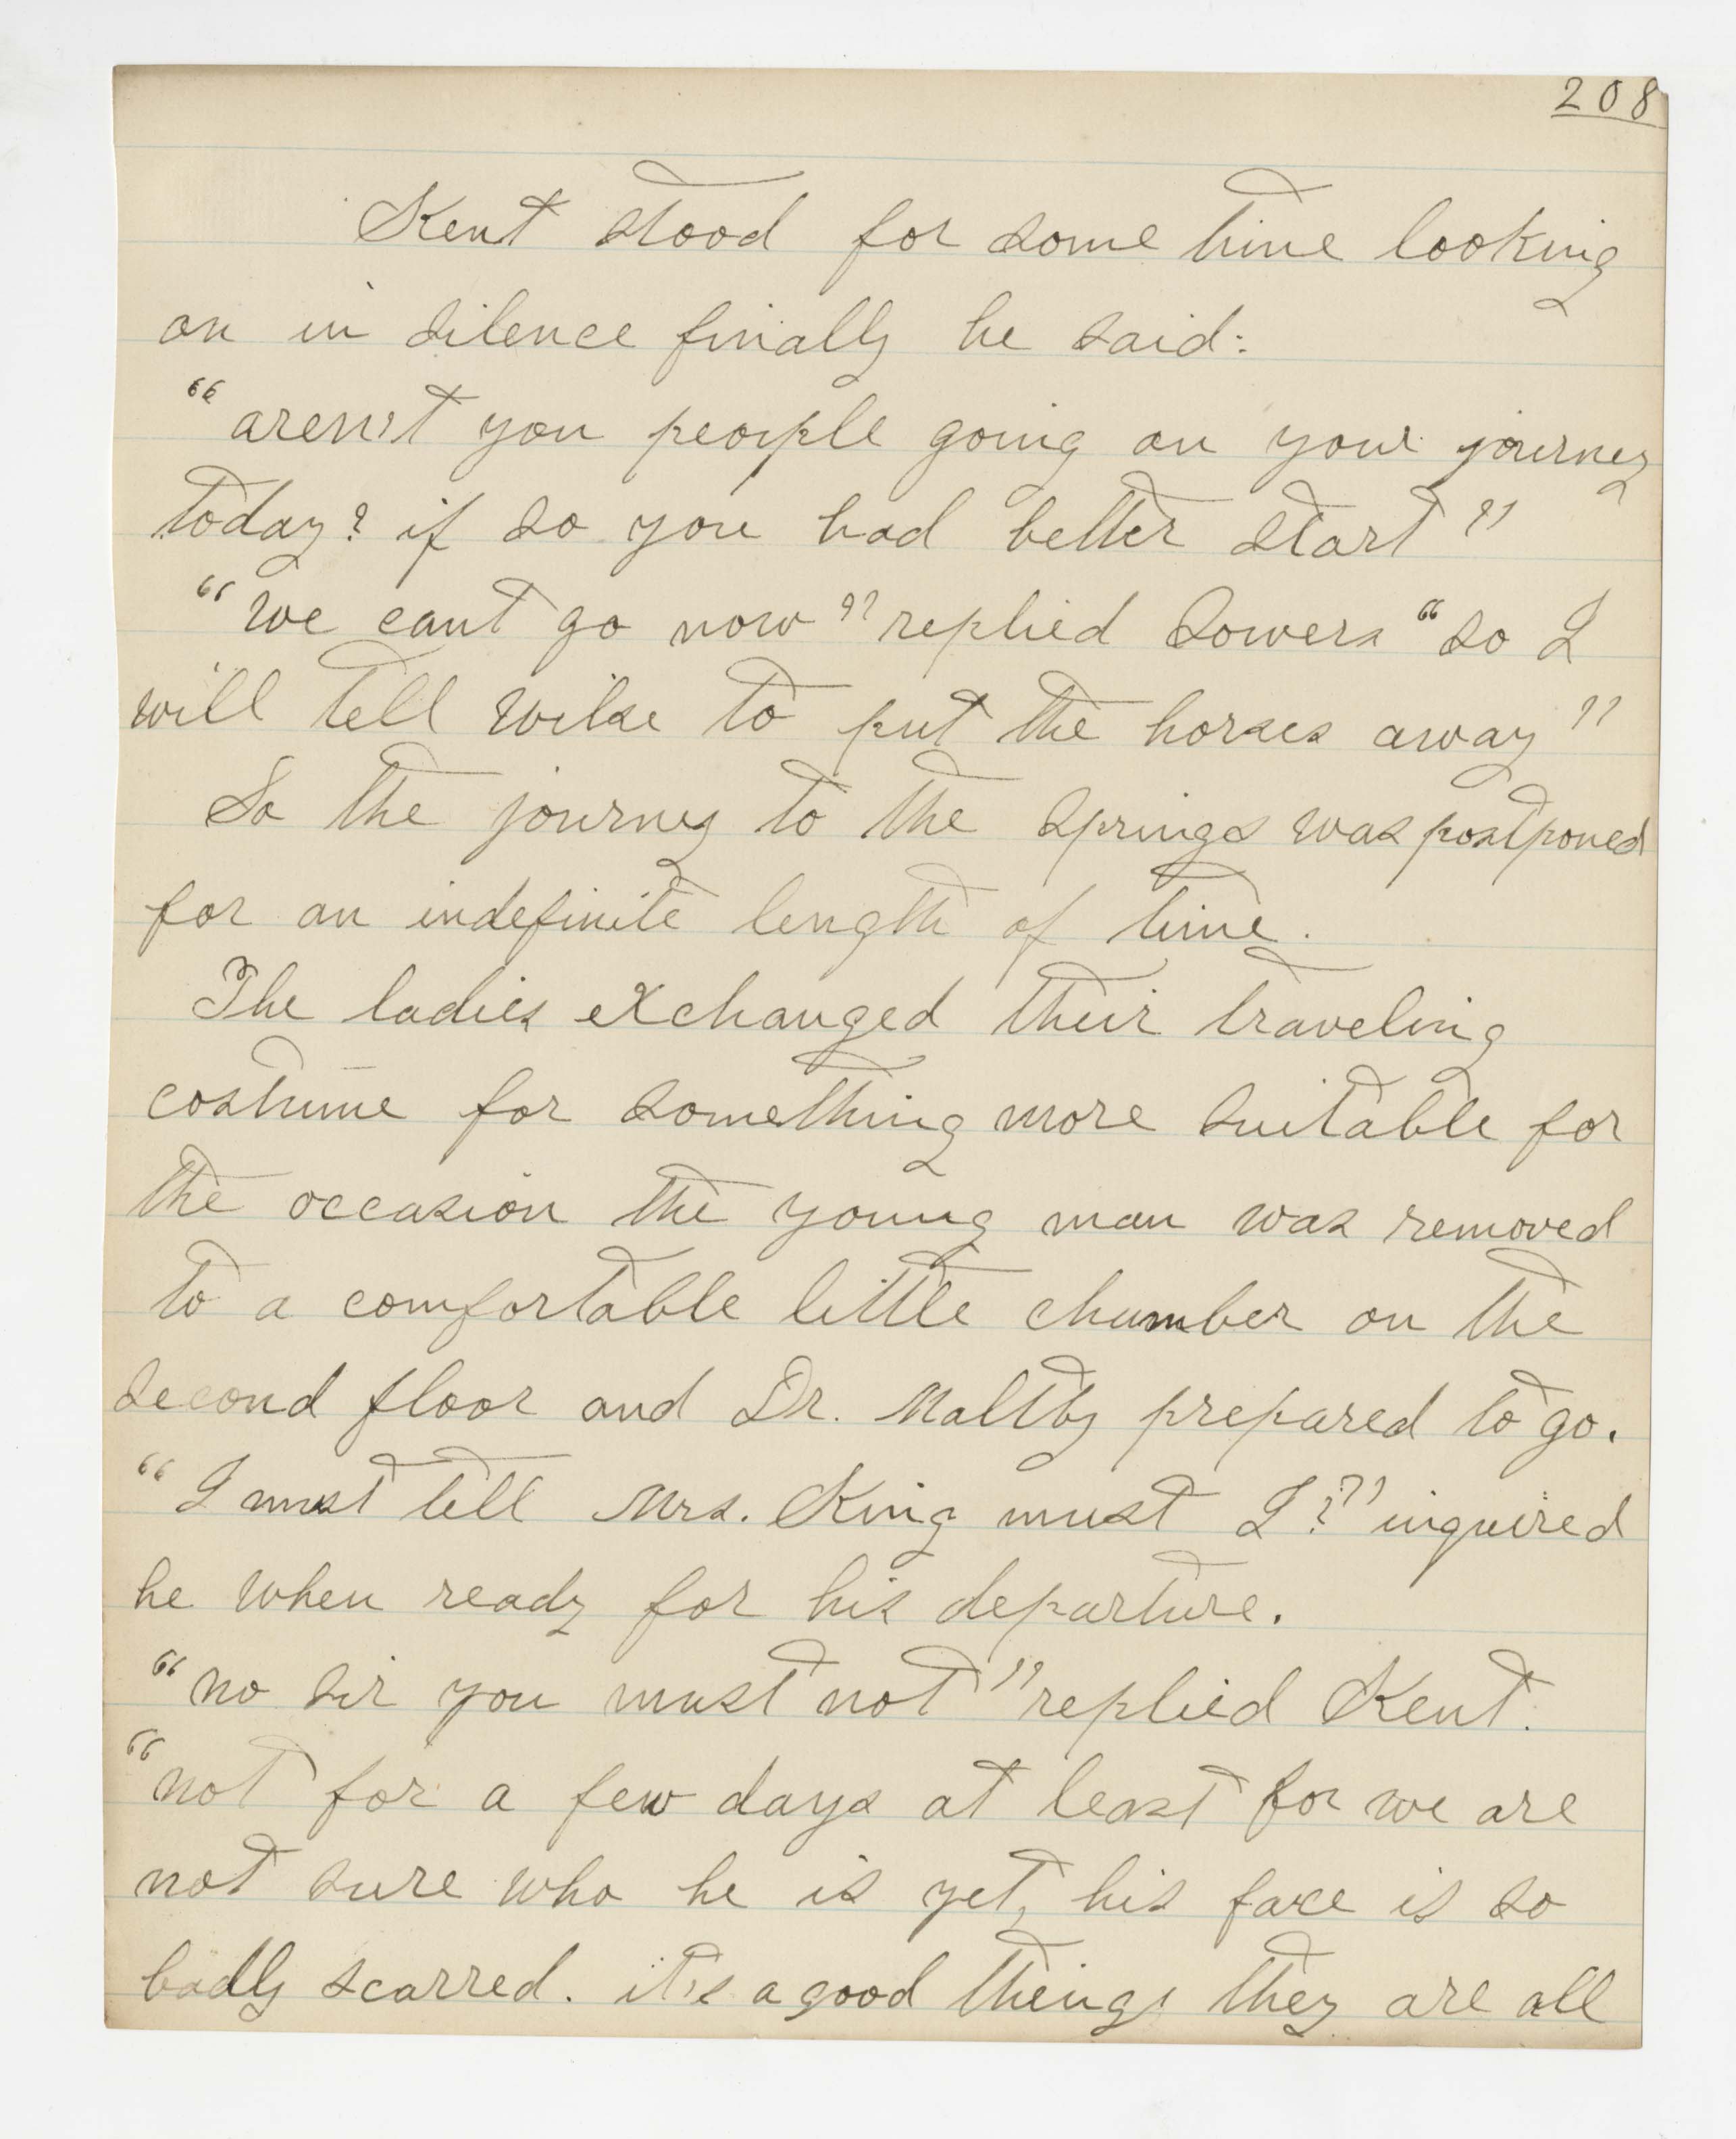 208
Kent stood for some time looking
on in silence finally he said:
"aren't you people going on your journey
today? if so you had better start"
"we cant go now" replied Sowers "so I
will tell Wilse to put the horses away"
So the journey to the springs was postponed
for an indefinite length of time.
The ladies exchanged their traveling
costume for something more suitable for
the occasion the young man was removed
to a comfortable little chamber on the
second floor and Dr. Maltby prepared to go.
"I must tell Mrs. King must I?" inquired
he when ready for his departure.
"no sir you must not" replied Kent.
"not for a few days at least for we are
not sure who he is yet, his face is so
badly scarred. it's a good thing they are all